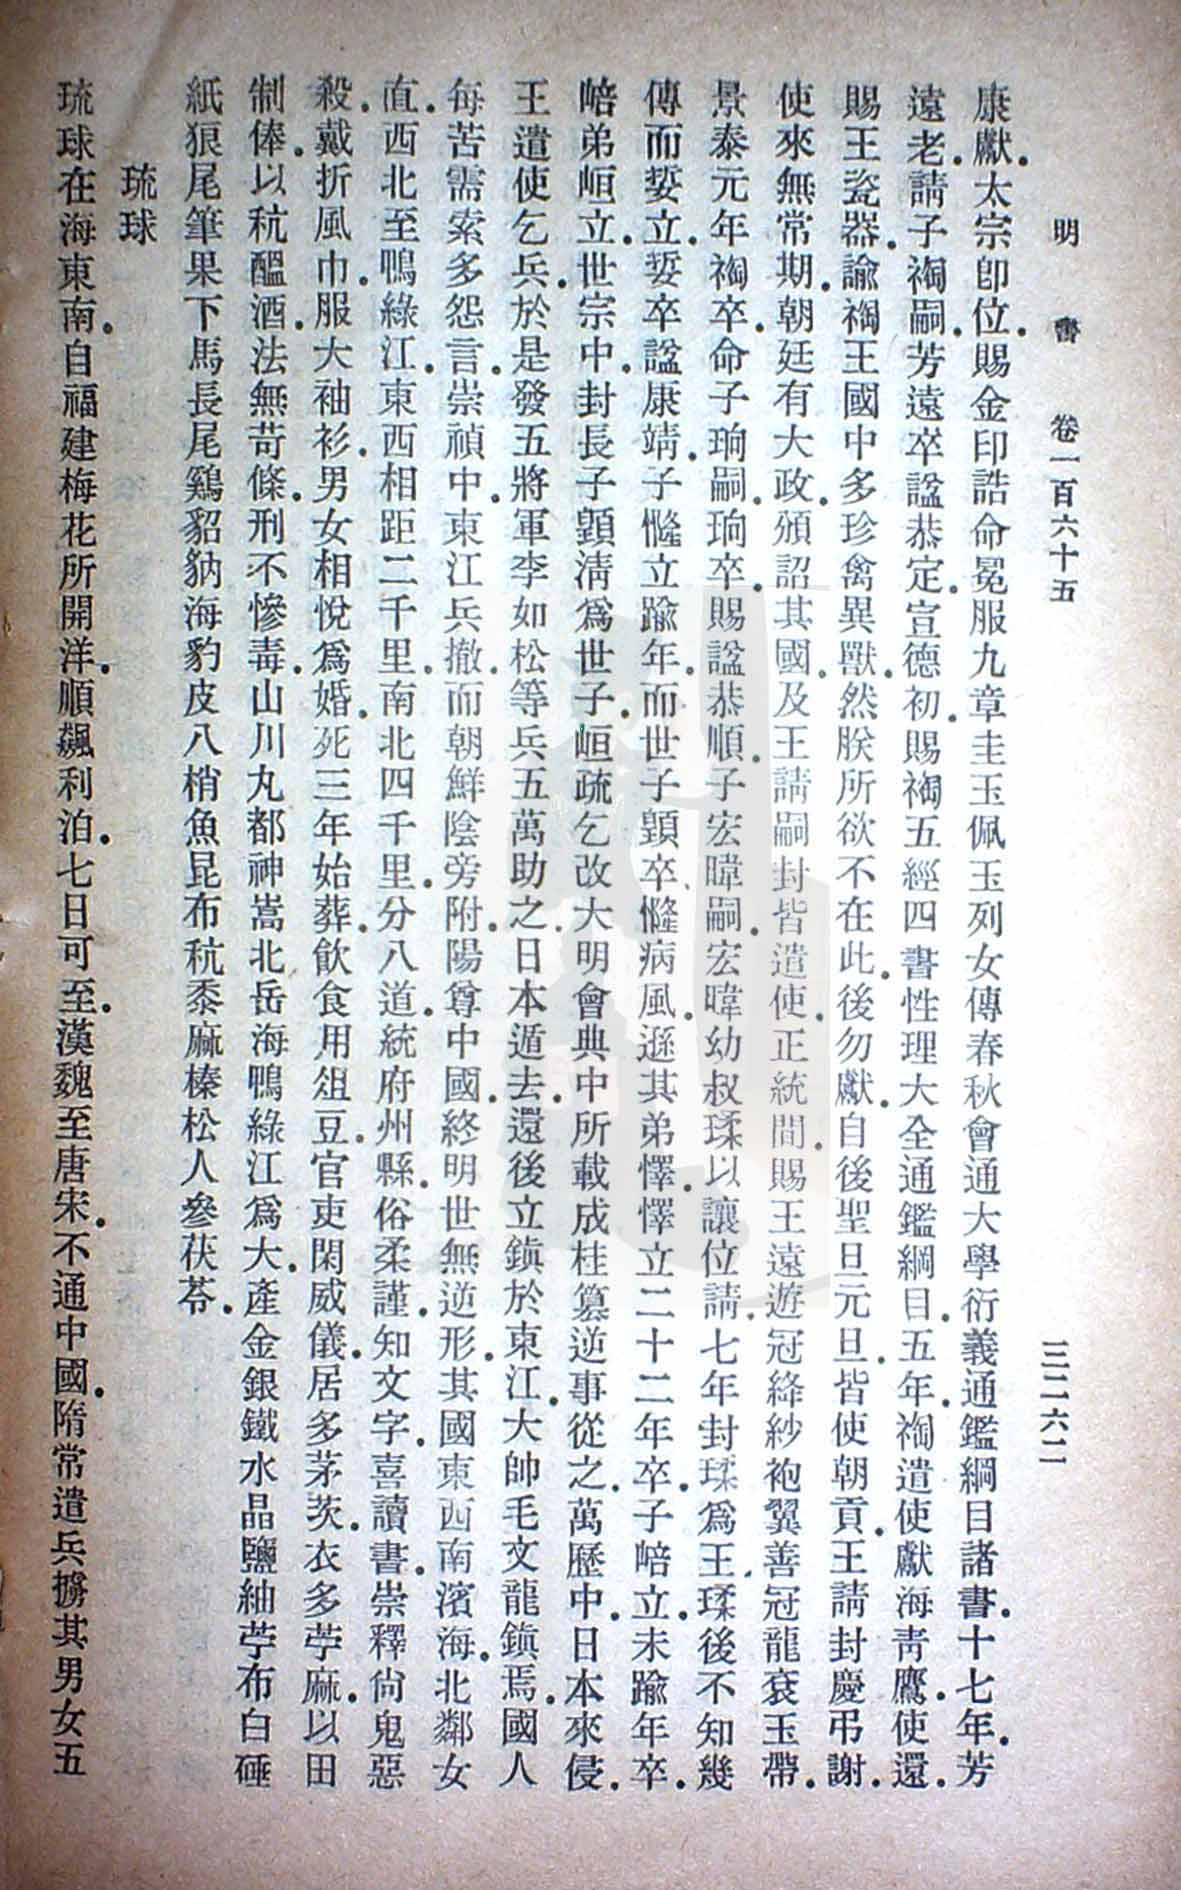 明書 卷一百六十五 三二六二
康獻。太宗卽位。賜金印誥命冕服九章圭玉佩玉列女傳春秋會通大學衍義通鑑綱目諸書。十七年。芳
遠老。請子裪嗣。芳遠卒諡恭定。宣德初。賜裪五經四書性理大全通鑑綱目。五年。裪遣使獻海靑鷹。使還。
賜王瓷器。諭裪王國中多珍禽異獸。然朕所欲不在此。後勿獻。自後聖旦元旦。皆使朝貢。王請封慶弔謝。
使來無常期。朝廷有大政。頒詔其國。及王請嗣封皆遣使。正統間。賜王遠遊冠絳紗袍翼善冠龍袞玉帶。
景泰元年裪卒。命子珦嗣。珦卒。賜諡恭順。子宏暐嗣。宏暐幼叔瑈以讓位請。七年封瑈爲王。瑈後不知幾
傳而娎立。娎卒諡康靖。子㦕立踰年。而世子顗卒。㦕病風。遜其弟懌。懌立二十二年。卒。子峼立。未踰年卒。
峼弟峘立。世宗中。封長子顗淸爲世子。峘疏乞改大明會典中所載成桂簒逆事從之。萬歷中。日本來侵。
王遣使乞兵。於是發五將軍李如松等兵五萬助之。日本遁去。還後立鎭於東江。大帥毛文龍鎭焉。國人
每苦需索多怨言。崇禎中。東江兵撤。而朝鮮陰旁附。陽尊中國。終明世無逆形。其國東西南濱海。北鄰女
直。西北至鴨綠江。東西相距二千里。南北四千里。分八道。統府州縣。俗柔謹。知文字。喜讀書。崇釋尙鬼惡
殺。戴折風巾。服大袖衫。男女相悅爲婚。死三年始葬。飮食用俎豆。官吏閑威儀。居多茅茨。衣多苧麻。以田
制俸。以秔醞酒。法無苛條。刑不慘毒。山川丸都神嵩北岳海鴨綠江爲大。產金銀鐵水晶鹽紬苧布白硾
紙狼尾筆果下馬長尾鷄貂豽海豹皮八梢魚昆布秔黍麻榛松人參茯苓。
琉球
琉球在海東南。自福建梅花所開洋。順飆利泊。七日可至。漢魏至唐宋。不通中國。隋常遣兵擄其男女五